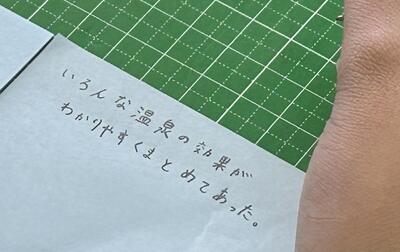 いろんな温泉の効果が
わかりやすくまとめてあった。